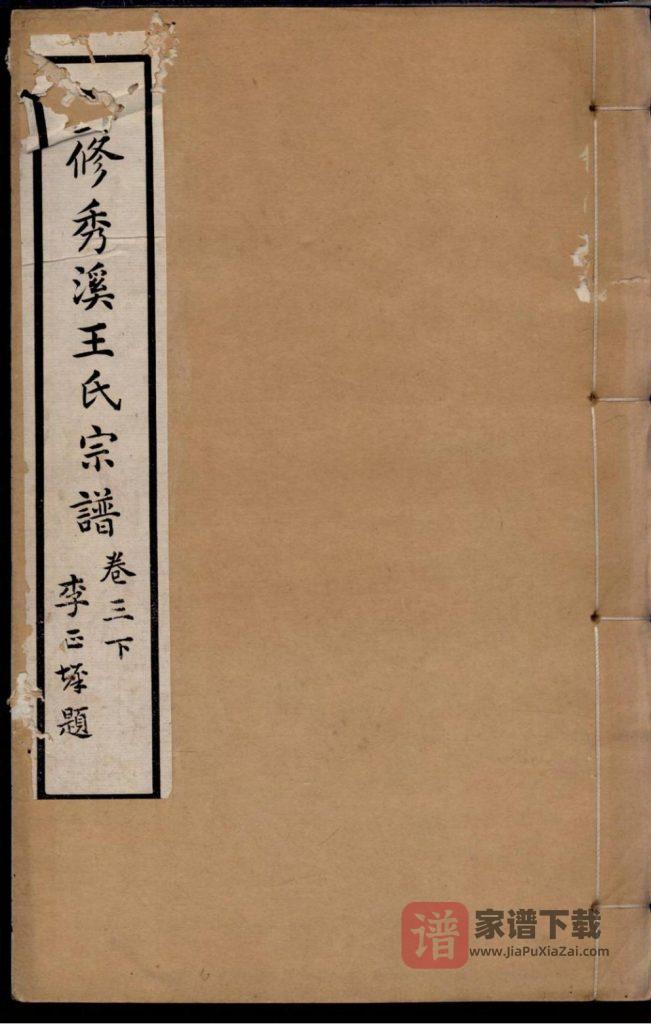 修秀溪王氏宗譜
卷三下
李正墀題
谱 家谱下载
www.JiaPuXiaZai.com